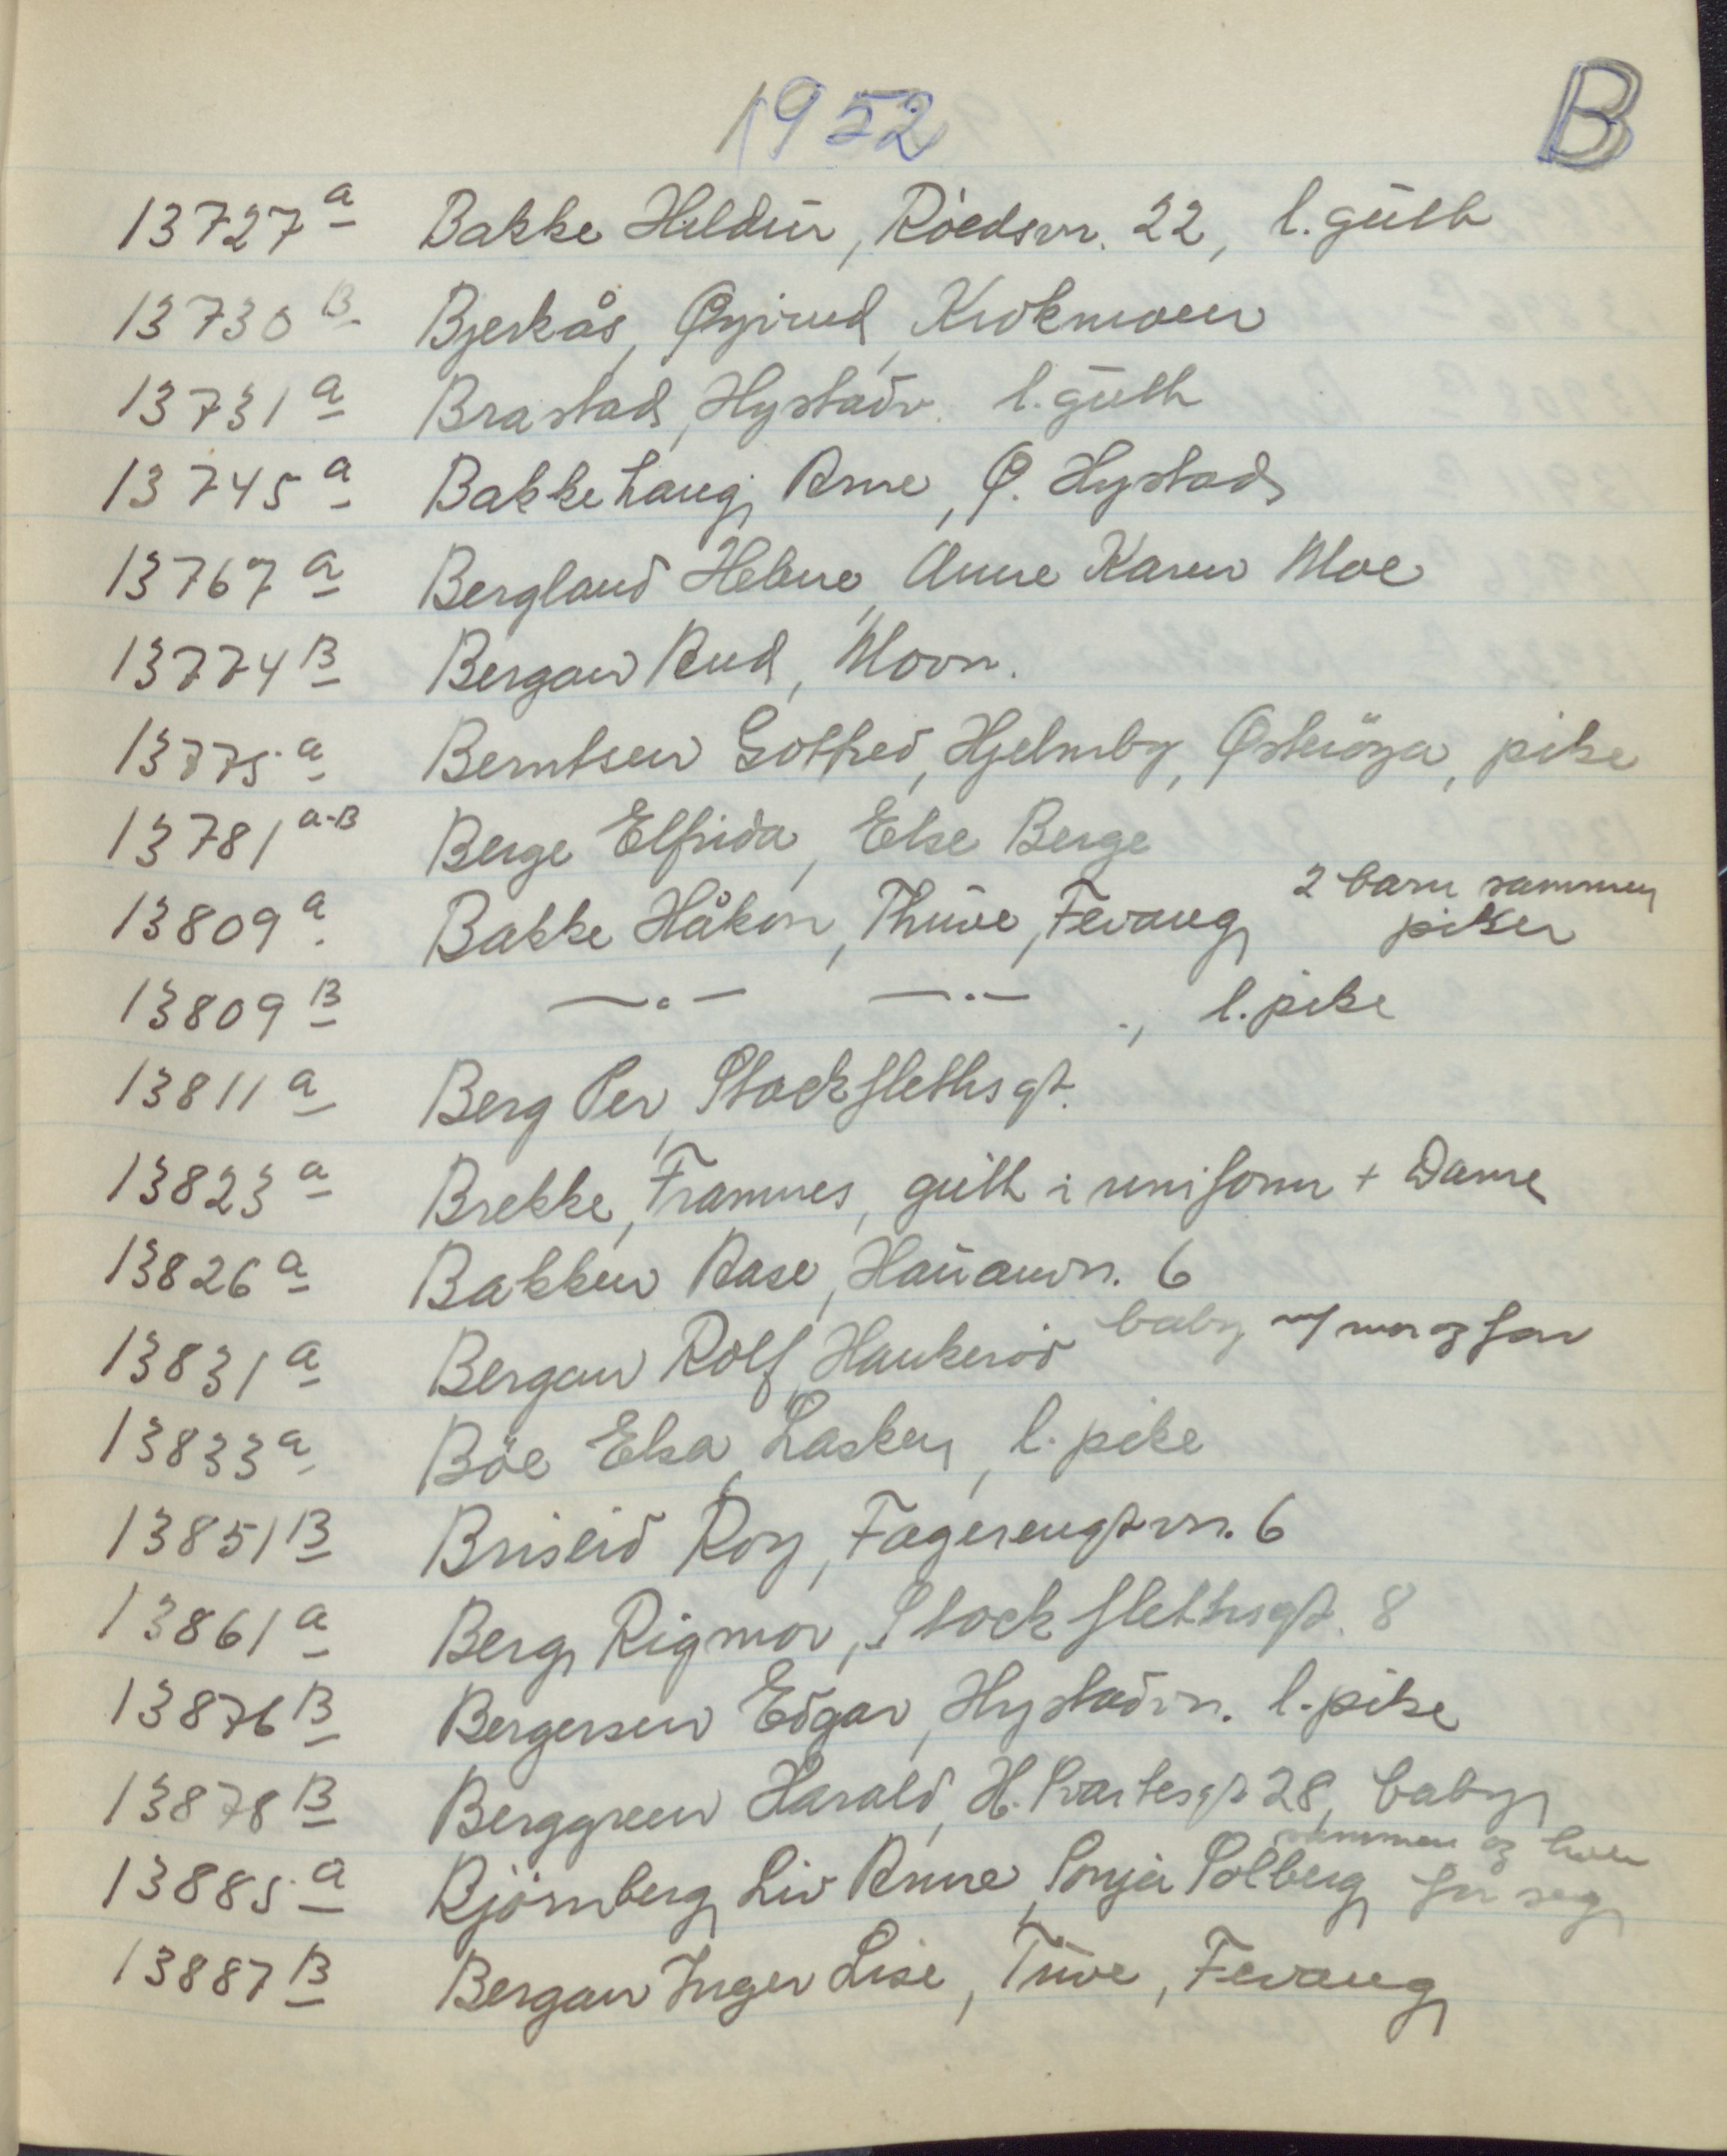 1952 B
13727 a Bakke Hildur, Röedsvn. 22, l. gutt
13730 B Bjerkås, Øyvind, Krokmoen
13731 a Brastad, Hystadv. l. gutt
13745 a Bakkehaug, Arne, Ø. Hystad
13767 a Bergland Helene, Anne Karen Moe
13774 B Bergan Aud, Movn.
13775 a Berntsen Gotfred, Hjelmby, Østeröya, pike
13781 a-B Berge Elfrida, Else Berge
13809 a Bakke Håkon, Thuve, Fevang, 2 barn sammen
piker
13809 B —〃— —〃— ., l. pike
13811 a Berg Per, Stockflethsgt.
13823 a Brekke, Framnes, gutt i uniform + Dame
13826 a Bakken Aase, Hauanvn. 6
13831 a Bergan Rolf, Haukeröd baby m/ mor og far
13833 a Böe Elsa, Lasken, l. pike
13851 B Briseid Roy, Fagerengtvn. 6
13861 a Berg, Rigmor, Stockflethsgt. 8
13876 B Bergersen Edgar, Hystadvn. l. pike
13878 B Berggreen Harald, H. Svartesgt 28, baby
sammen og hver
13885 a Björnberg Liv Anne, Sonja Solberg for seg
13887 B Bergan Inger Lise, Tuve, Fevang